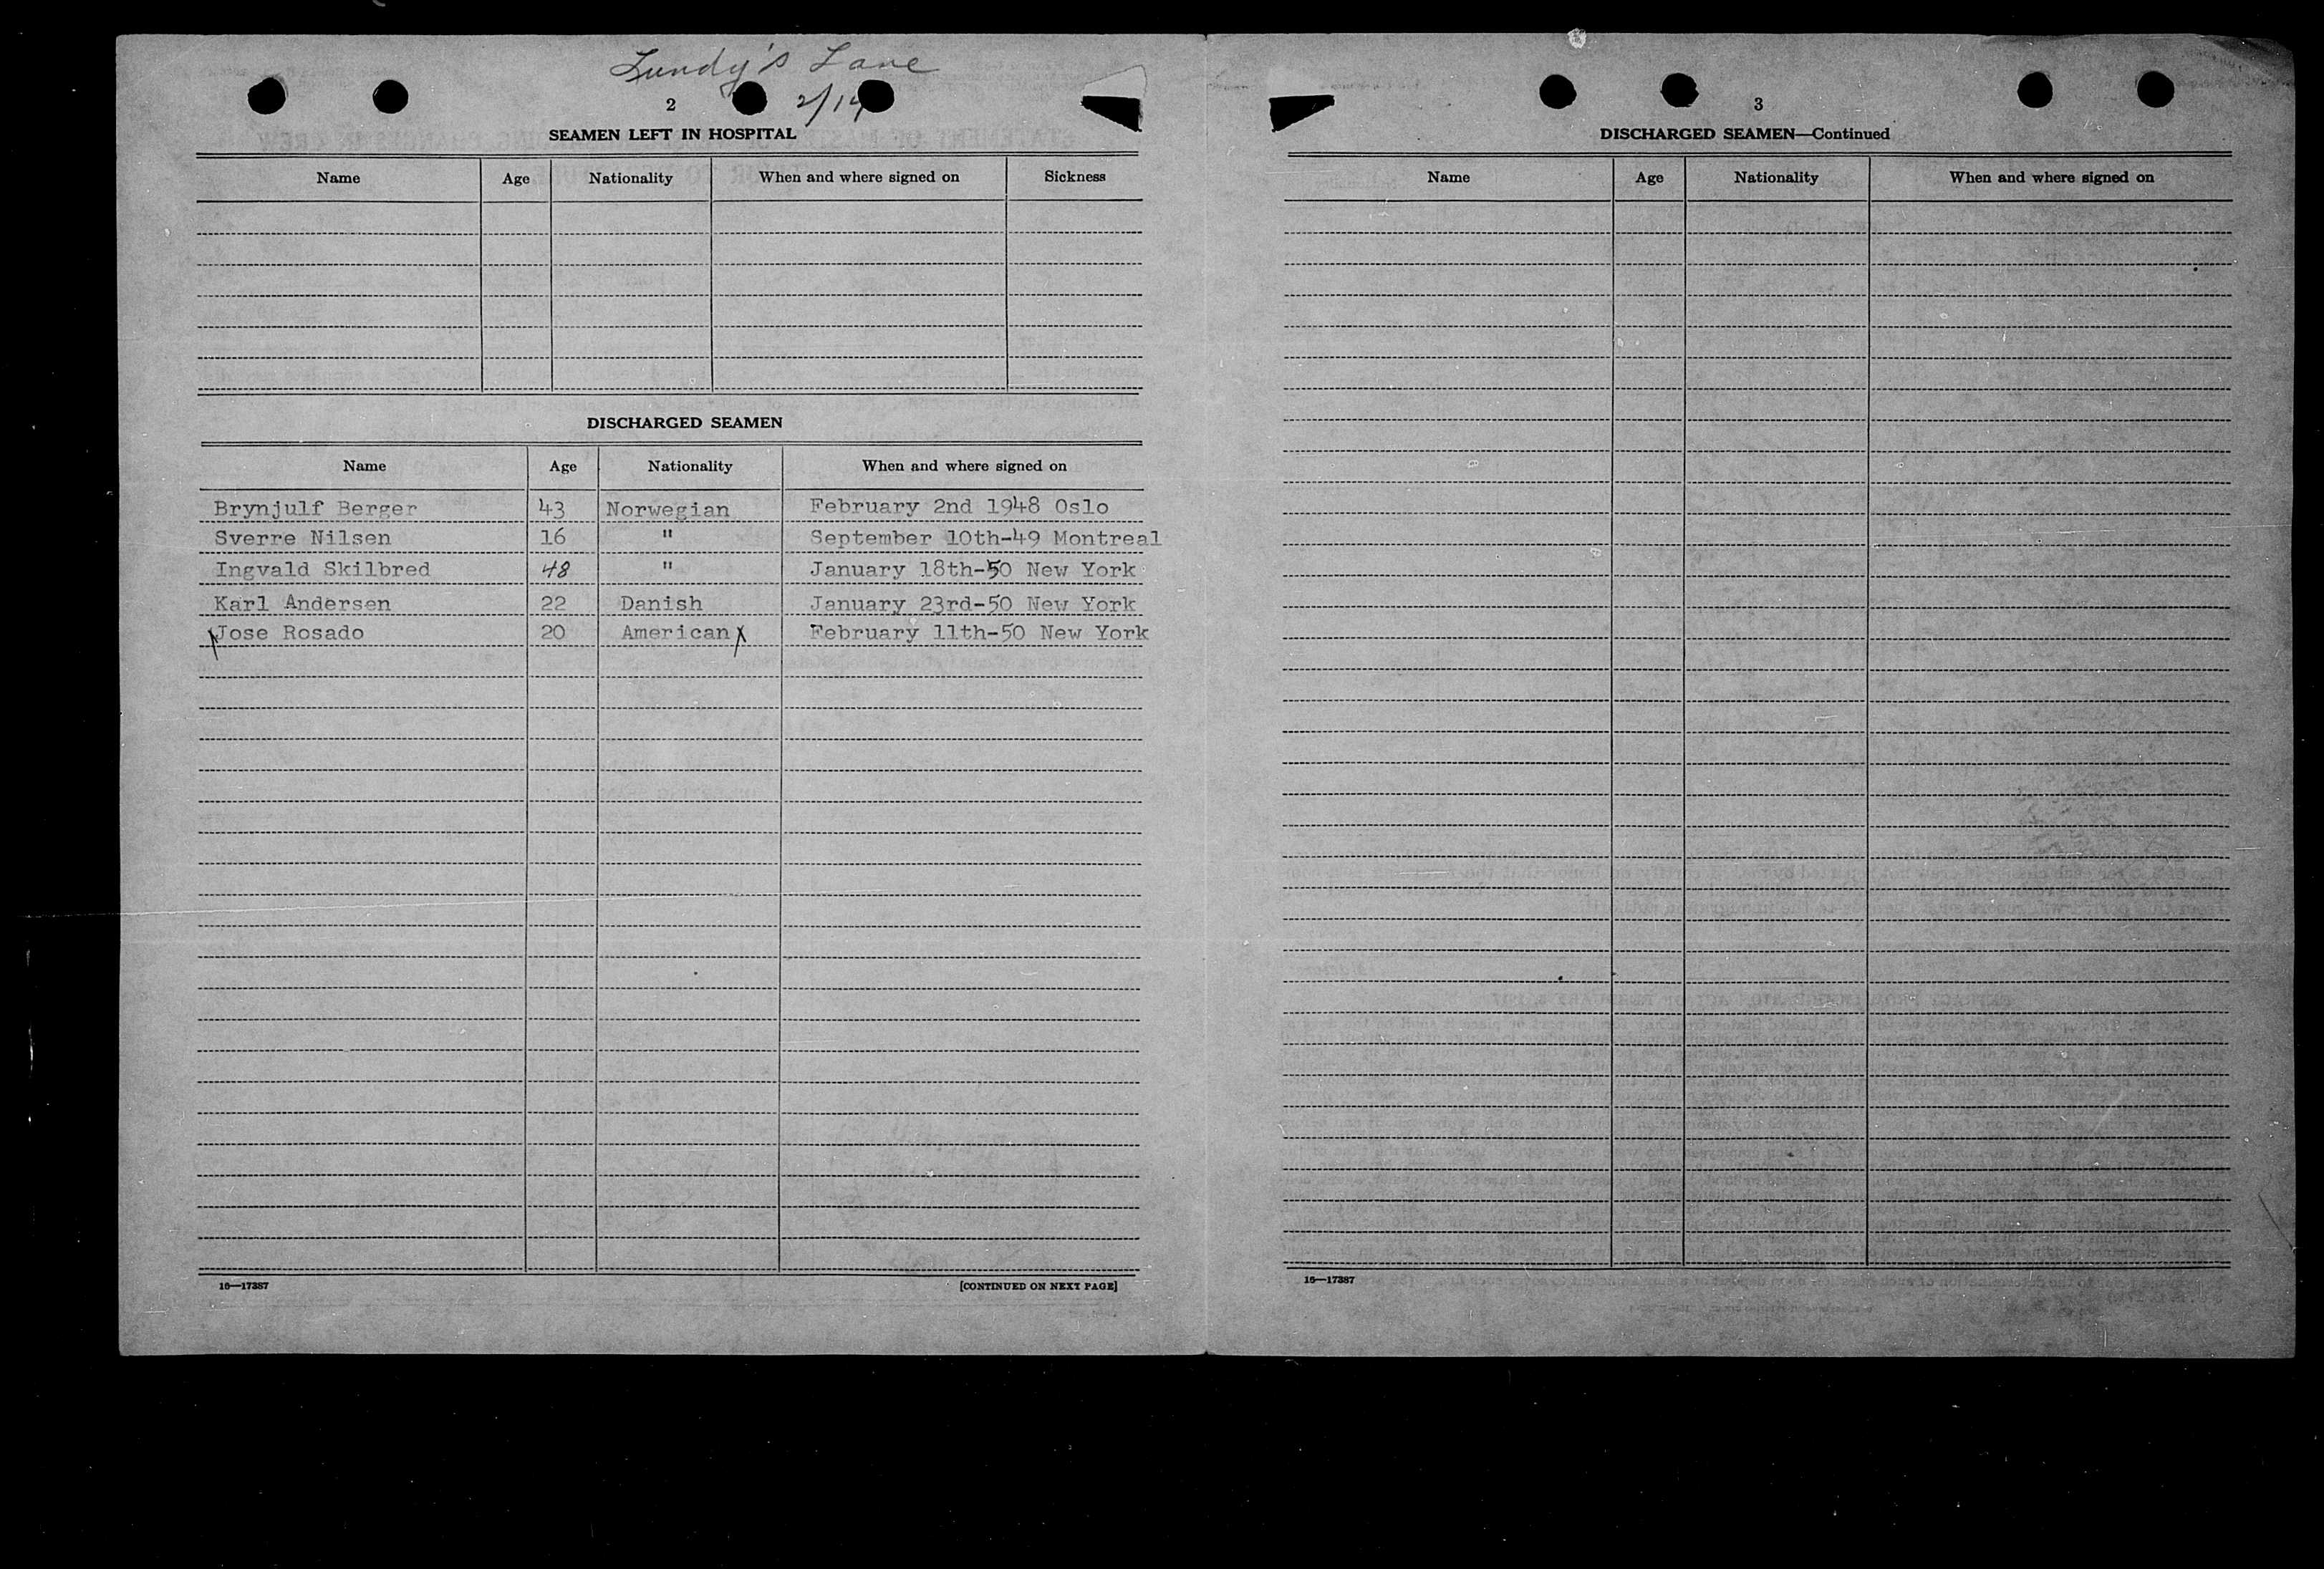 Lundy's Lane
2 2/14
SEAMEN LEFT IN HOSPITAL
Name Age Nationality When and where signed on Sickness
DISCHARGED SEAMEN
Name Age Nationality When and where signed on
Brynjulf Berger 43 Norwegian February 2nd 1948 Oslo
Sverre Nilsen 16 " September 10th-49 Montreal
Ingvald Skilbred 48 " January 18th-50 New York
Karl Andersen 22 Danish January 23rd-50 New York
Jose Rosado 20 American x February 11th-50 New York
16—17387 [CONTINUED ON NEXT PAGE]
3
DISCHARGED SEAMEN—Continued
Name Age Nationality When and where signed on
16—17387